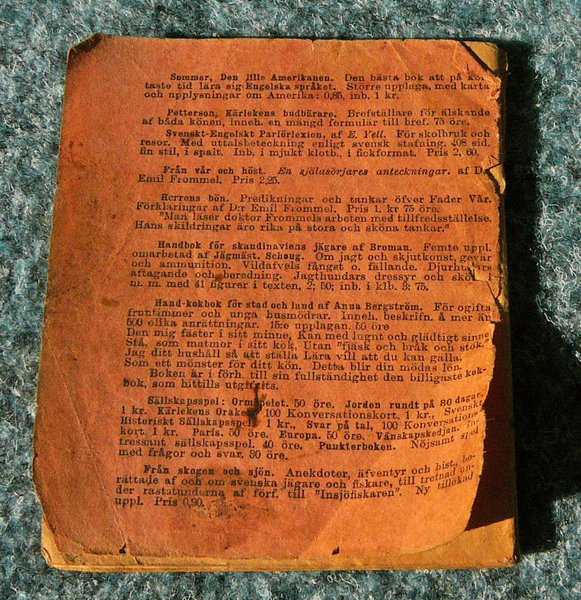 Sommer, Den lille Amerikanen. Den bästa bok att på kor-
taste tid lära sig Engelska språket. Större upplaga, med karta
och upplysningar om Amerika: 0,85, inb. 1 kr.
Petterson, Kärlekens budbärare. Brefställare för älskande
af båda könen, inneh. en mängd formulär till bref. 75 öre.
Svenskt-Engelskt Parlörlexion, af E. Yell. För skolbruk och
resor. Med uttalsbeteckning enligt svensk stafning. 408 sid.
fin stil, i spalt. Inb. i mjukt klotb., i fickformat. Pris 2, 60.
Från vår och höst. En själasörjares anteckningar. af Dr
Emil Frommel. Pris 2,25.
Herrens bön. Predikningar och tankar öfver Fader Vår.
Förklaringar af Dr Emil Frommel. Pris 1 kr 75 öre.
"Man läser doktor Frommels arbeten med tillfredsställelse.
Hans skildringar äro rika på stora och sköna tankar."
Handbok för skandinaviens jägare af Broman. Femte uppl.
omarbetad af Jägmäst. Scheug. Om jagt och skjutkonst, gevär
och ammunition. Vildafvels fångst o. fällande. Djurhudars
aftagande och beredning. Jagthundars dressyr och
m. m. med 41 figurer i texten. 2; 50; inb. i klb. 3: 75.
Hand-kokbok för stad och land af Anna Bergström. För ogifta
fruntimmer och unga husmödrar. Inneh. beskrifn. å mer än
500 olika anrättningar. 15:e upplagan. 50 öre
Den mig fäster i sitt minne, Kan med lugnt och glädtigt sinne
Stå, som matmor i sitt kök, Utan "fjäsk och bråk och stök."
Jag ditt hushåll så att ställa Lära vill att du kan gälla,
Som ett mönster för ditt kön. Detta blir din mödas lön.
Boken är i förh. till sin fullständighet den billigaste kok-
bok, som hittills utgifvits.
Sällskapsspel: Ormspelet. 50 öre. Jorden rundt på 80 dagar.
1 kr. Kärlekens Orakel, 100 Konversationskort. 1 kr., Svenskt
Historiskt Sällskapsspel 1 kr., Svar på tal, 100 Konversations-
kort. 1 kr. Paris. 50 öre. Europa. 50 öre. Vänskapskedjan.
tressant sällskapsspel. 40 öre. Punkterboken. Nöjsamt spel
med frågor och svar. 30 öre.
Från skogen och sjön. Anekdoter, äfventyr och hist., be-
rättade af och om svenska jägare och fiskare, till trefnad un-
der raststunderna af förf. till "Insjöfiskaren". Ny tillökad
uppl. Pris 0,90.